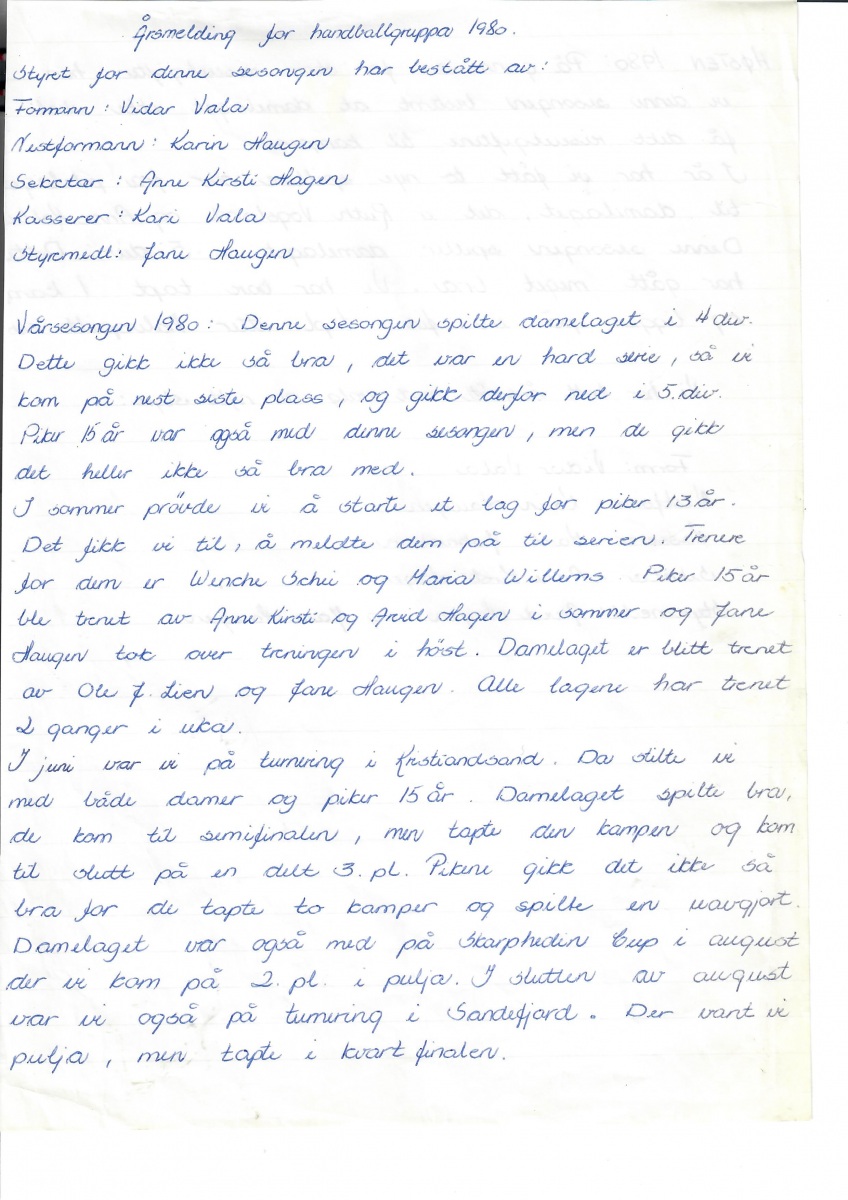 Årsmelding for handballgruppa 1980.
Styret for denne sesongen har bestått av:
Formann: Vidar Vala
Nestformann: Karin Haugen
Sekretær: Anne Kirsti Hagen
Kasserer: Kari Vala
Styremedl: Jane Haugen
Vårsesongen 1980: Denne sesongen spilte damelaget i 4 div.
Dette gikk ikke så bra, det var en hard serie, så vi
kom på nest siste plass, og gikk derfor ned i 5. div.
Piker 15 år var også med denne sesongen, men de gikk
det heller ikke så bra med.
I sommer prövde vi å starte et lag for piker 13 år.
Det fikk vi til, å meldte dem på til serien. Trenere
for dem er Wenche Schei og Maria Willems. Piker 15 år
ble trenet av Anne Kirsti og Arvid Hagen i sommer og Jane
Haugen tok over treningen i höst. Damelaget er blitt trenet
av Ole J. Lien og Jane Haugen. Alle lagene har trenet
2 ganger i uka.
I juni var vi på turnering i Kristiandsand. Da stilte vi
med både damer og piker 15 år. Damelaget spilte bra,
de kom til semifinalen, men tapte den kampen og kom
til slutt på en delt 3. pl. Pikene gikk det ikke så
bra for de tapte to kamper og spilte en uavgjort.
Damelaget var også med på Skarphedin Cup i august
der vi kom på 2. pl. i pulja. I slutten av august
var vi også på turnering i Sandefjord. Der vant vi
pulja, men tapte i kvart finalen.